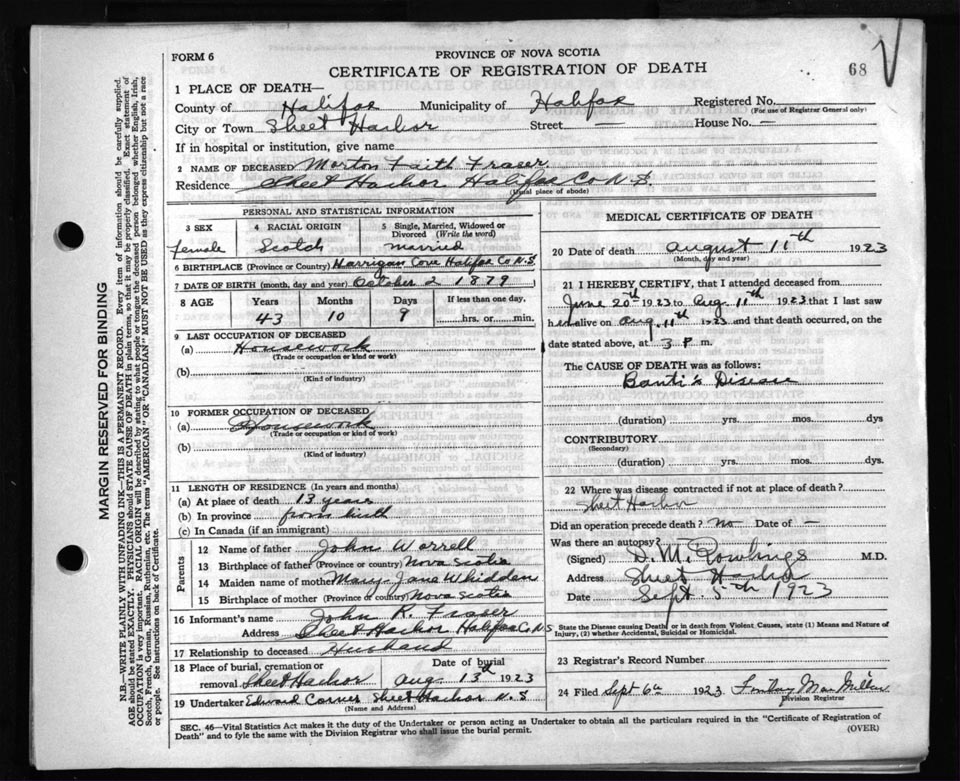 FORM 6
PROVINCE OF NOVA SCOTIA
CERTIFICATE OF REGISTRATION OF DEATH
68
1 PLACE OF DEATH—
County of Halifax Municipality of Halifax Registered No.
(For use of Registrar General only)
City or Town Sheet Harbor Street — House No. —
If in hospital or institution, give name
2 NAME OF DECEASED Morton Faith Fraser
Residence Sheet Harbor Halifax Co N.S.
(Usual place of abode)
PERSONAL AND STATISTICAL INFORMATION
3 SEX 4 RACIAL ORIGIN 5 Single, Married, Widowed or Divorced (Write the word)
female Scotch married
6 BIRTHPLACE (Province or Country) Harrigan Cove Halifax Co N.S
7 DATE OF BIRTH (month, day and year) October 2 1879
8 AGE Years Months Days If less than one day,
43 10 9 hrs. or min.
9 LAST OCCUPATION OF DECEASED
(a) Housework
(Trade or occupation or kind or work)
(b)
(Kind of industry)
10 FORMER OCCUPATION OF DECEASED
(a) Housework
(Trade or occupation or kind or work)
(b)
(Kind of industry)
11 LENGTH OF RESIDENCE (In years and months)
(a) At place of death 13 years
(b) In province from birth
(c) In Canada (if an immigrant)
Parents
12 Name of father John Worrell
13 Birthplace of father (Province or country) Nova Scotia
14 Maiden name of mother Mary Jane Whidden
15 Birthplace of mother (Province or country) Nova Scotia
16 Informant's name John R. Fraser
Address Sheet Harbor Halifax Co N S
17 Relationship to deceased Husband
18 Place of burial, cremation or Date of burial
removal Sheet Harbor Aug 13th 1923
19 Undertaker Edward Conner Sheet Harbor N. S
(Name and Address)
MEDICAL CERTIFICATE OF DEATH
20 Date of death August 11th 1923
(Month, day and year)
21 I HEREBY CERTIFY, that I attended deceased from
June 20th 1923 to Aug. 11th 1923 that I last saw
h alive on Aug. 11th 1923 and that death occurred, on the
date stated above, at 3 P m.
The CAUSE OF DEATH was as follows:
Banti's Disease
(duration) yrs. mos. dys
CONTRIBUTORY
(Secondary)
(duration) yrs. mos. dys.
22 Where was disease contracted if not at place of death?
Sheet Harbor
Did an operation precede death? No Date of —
Was there an autopsy?
(Signed) D. M. Rowlings M.D.
Address Sheet Harbor
Date Sept. 5th 1923
State the Disease causing Death, or in death from Violent Causes, state (1) Means and Nature of
Injury, (2) whether Accidental, Suicidal or Homicidal.
23 Registrar's Record Number
24 Filed Sept 6th 1923. Lindsay MacMillan
Division Registrar
SEC. 46—Vital Statistics Act makes it the duty of the Undertaker or person acting as Undertaker to obtain all the particulars required in the "Certificate of Registration of
Death" and to fyle the same with the Division Registrar who shall issue the burial permit.
(OVER)
MARGIN RESERVED FOR BINDING
N.B.—WRITE PLAINLY WITH UNFADING INK—THIS IS A PERMANENT RECORD. Every item of information should be carefully supplied.
AGE should be stated EXACTLY. PHYSICIANS should STATE CAUSE OF DEATH in plain terms, so that it may be properly classified. Exact statement of
OCCUPATION is very important. RACIAL ORIGIN will be described by stating to what people or tongue the deceased person belonged whether English, Irish,
Scotch, French, German, Russian, Ruthenian, etc. The terms "AMERICAN" OR "CANADIAN" MUST NOT BE USED as they express citizenship but not a race
or people. See instructions on back of Certificate.